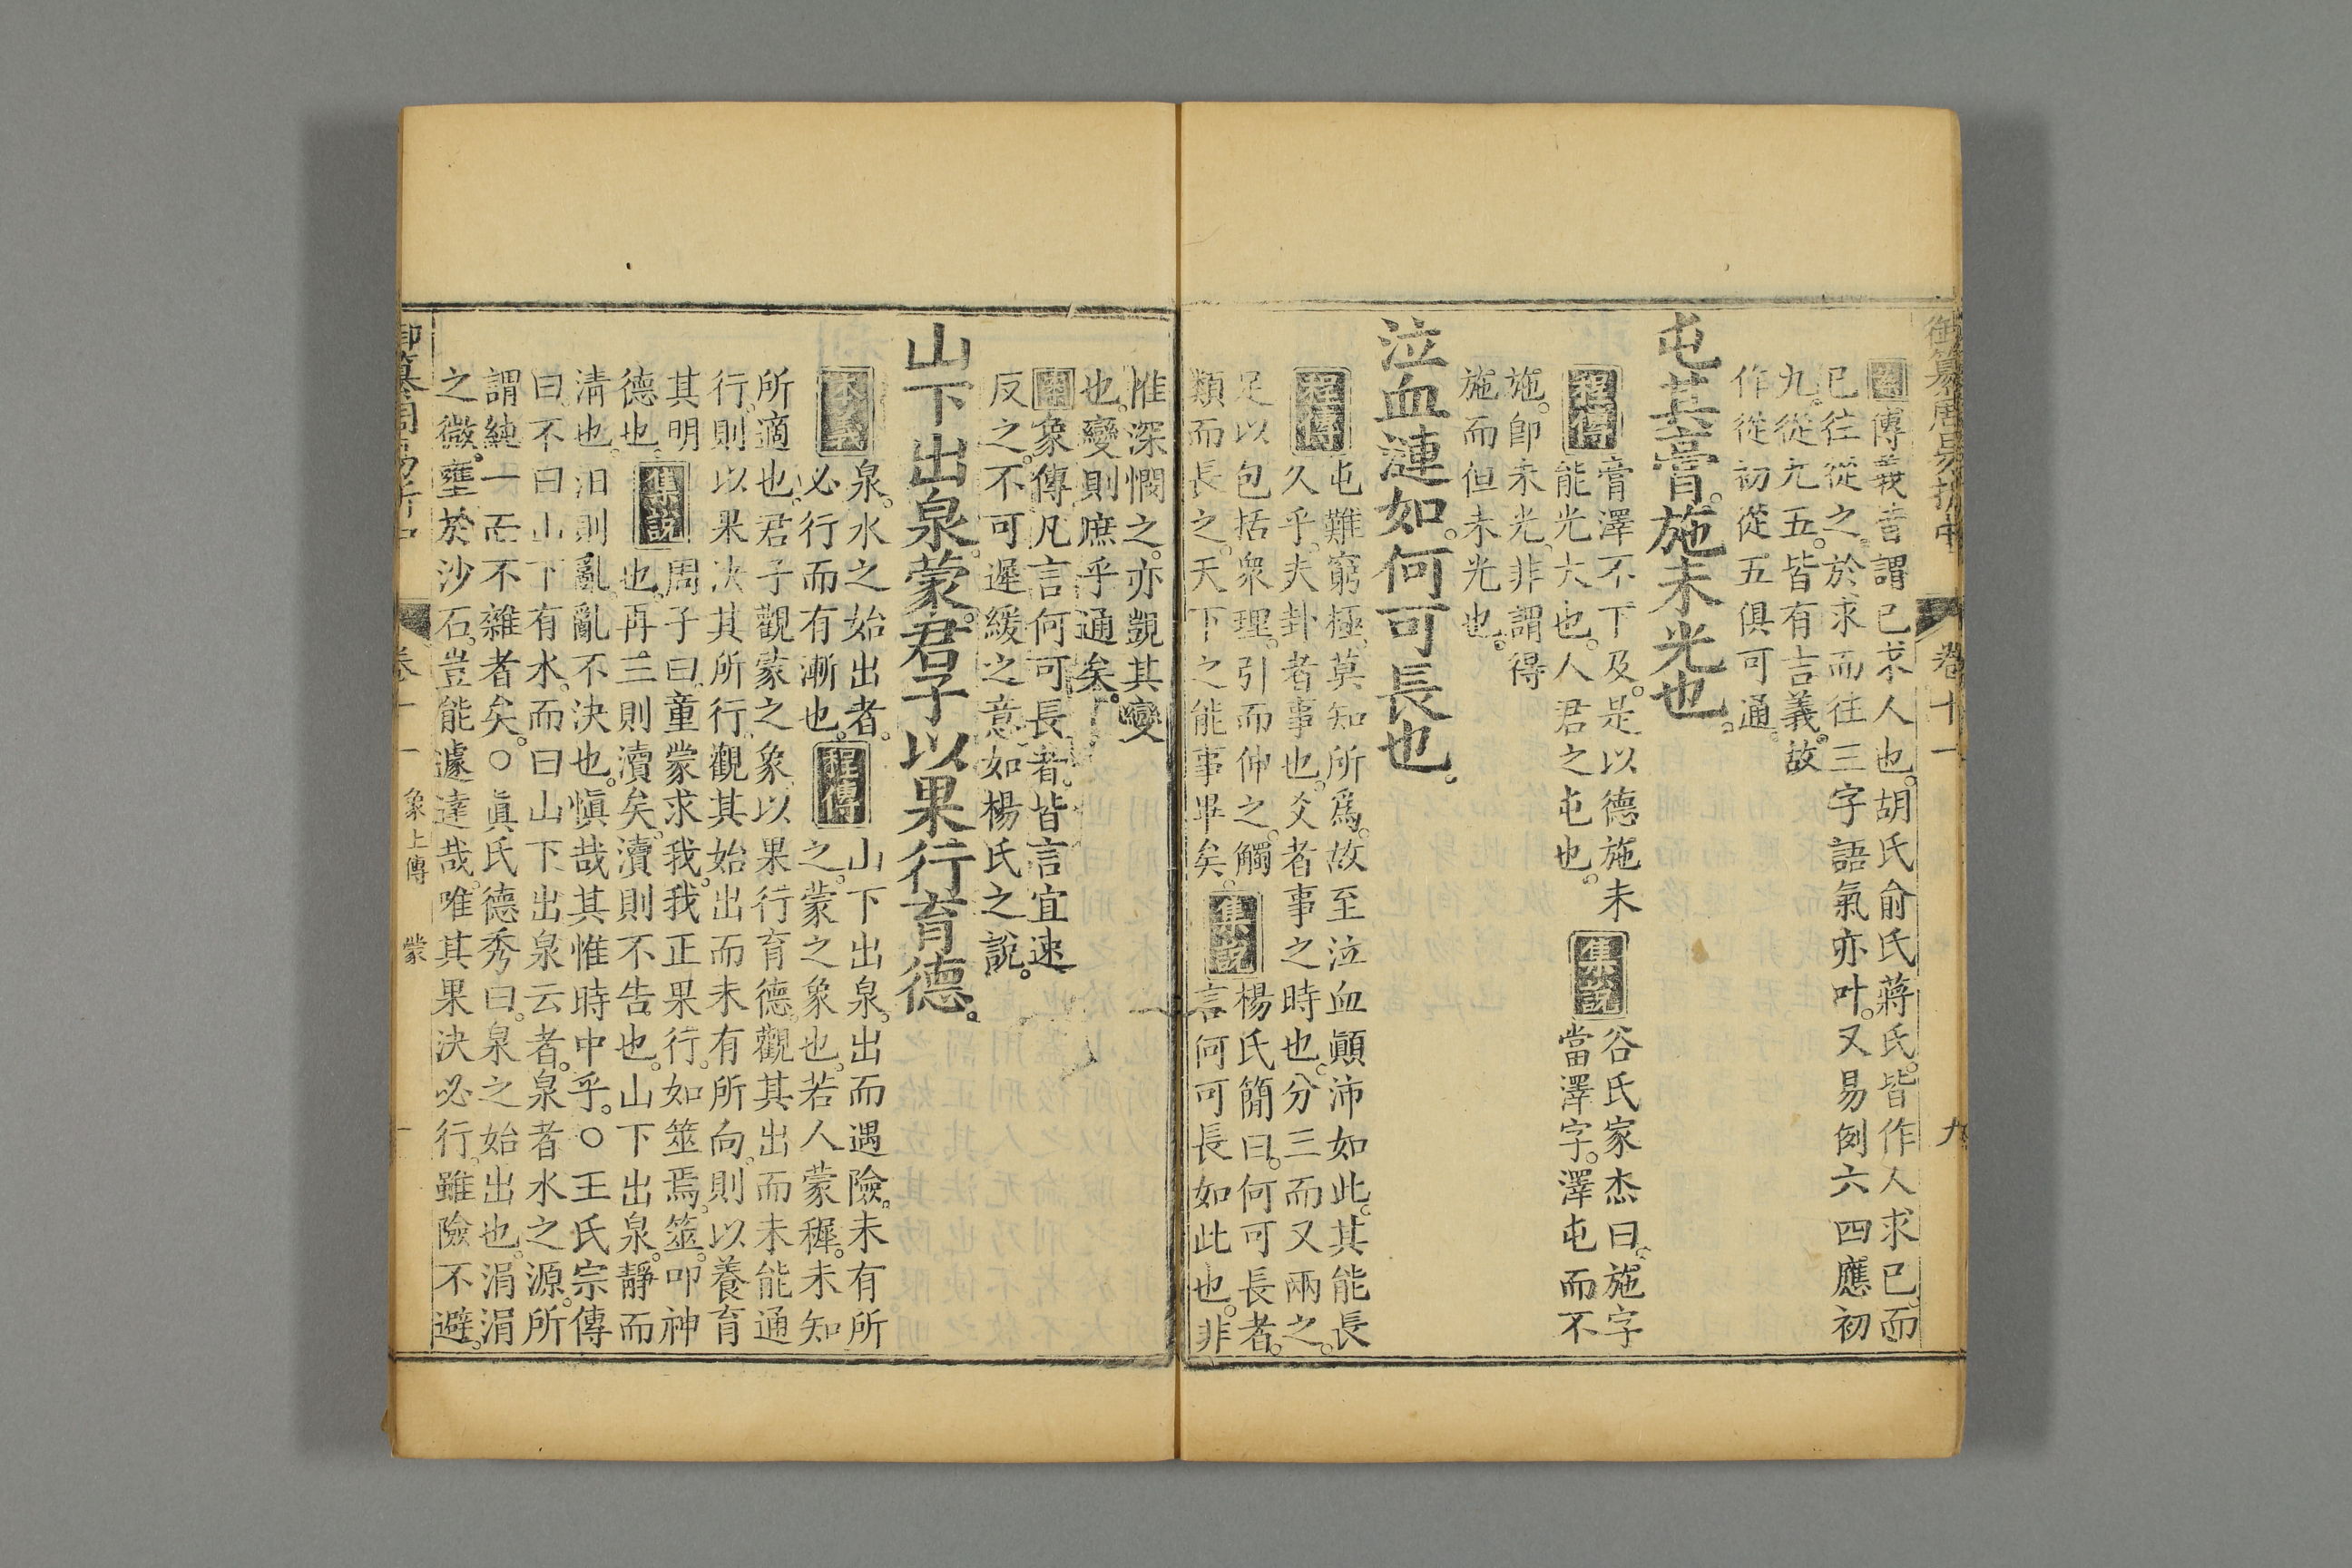 御纂周易折中 卷十一 九
案傳義皆謂已求人也。胡氏俞氏蔣氏。皆作人求已。而
已往從之。於求而往三字語氣亦叶。又易例六四應初
九。從九五。皆有吉義。故
作從初從五俱可通。
屯其膏。施未光也。
程傳 膏澤不下及。是以德施未
能光大也。人君之屯也。
集說 谷氏家杰曰。施字
當澤字。澤屯而不
施。卽未光。非謂得
施而但未光也。
泣血漣如。何可長也。
程傳 屯難窮極。莫知所爲。故至泣血顚沛如此。其能長
久乎。夫卦者事也。爻者事之時也。分三而又兩之。
足以包括衆理。引而伸之。觸
類而長之。天下之能事畢矣。
集說 楊氏簡曰。何可長者。
言何可長如此也。非
惟深憫之。亦覬其變
也。變則庶乎通矣。
案象傳凡言何可長者。皆言宜速
反之。不可遲緩之意。如楊氏之說。
山下出泉蒙。君子以果行育德。
本義 泉。水之始出者。
必行而有漸也。
程傳 山下出泉。出而遇險。未有所
之。蒙之象也。若人蒙穉。未知
所適也。君子觀蒙之象。以果行育德。觀其出而未能通
行。則以果決其所行。觀其始出而未有所向。則以養育
其明
德也。
集說 周子曰。童蒙求我。我正果行。如筮焉。筮。叩神
也。再三則瀆矣。瀆則不告也。山下出泉。靜而
淸也。汨則亂。亂不決也。愼哉其惟時中乎。○王氏宗傳
曰。不曰山下有水。而曰山下出泉云者。泉者水之源。所
謂純一而不雜者矣。○眞氏德秀曰。泉之始出也。涓涓
之微。壅於沙石。豈能遽達哉。唯其果決必行。雖險不避。
御纂周易折中 卷十一 象上傳 蒙